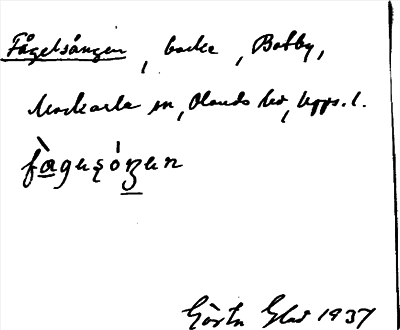 Fågelsången, backe, Bobby,
Markarla sn, Olands hd, Upps. l.
fàgɯsóŋen
Gösta Glad 1937